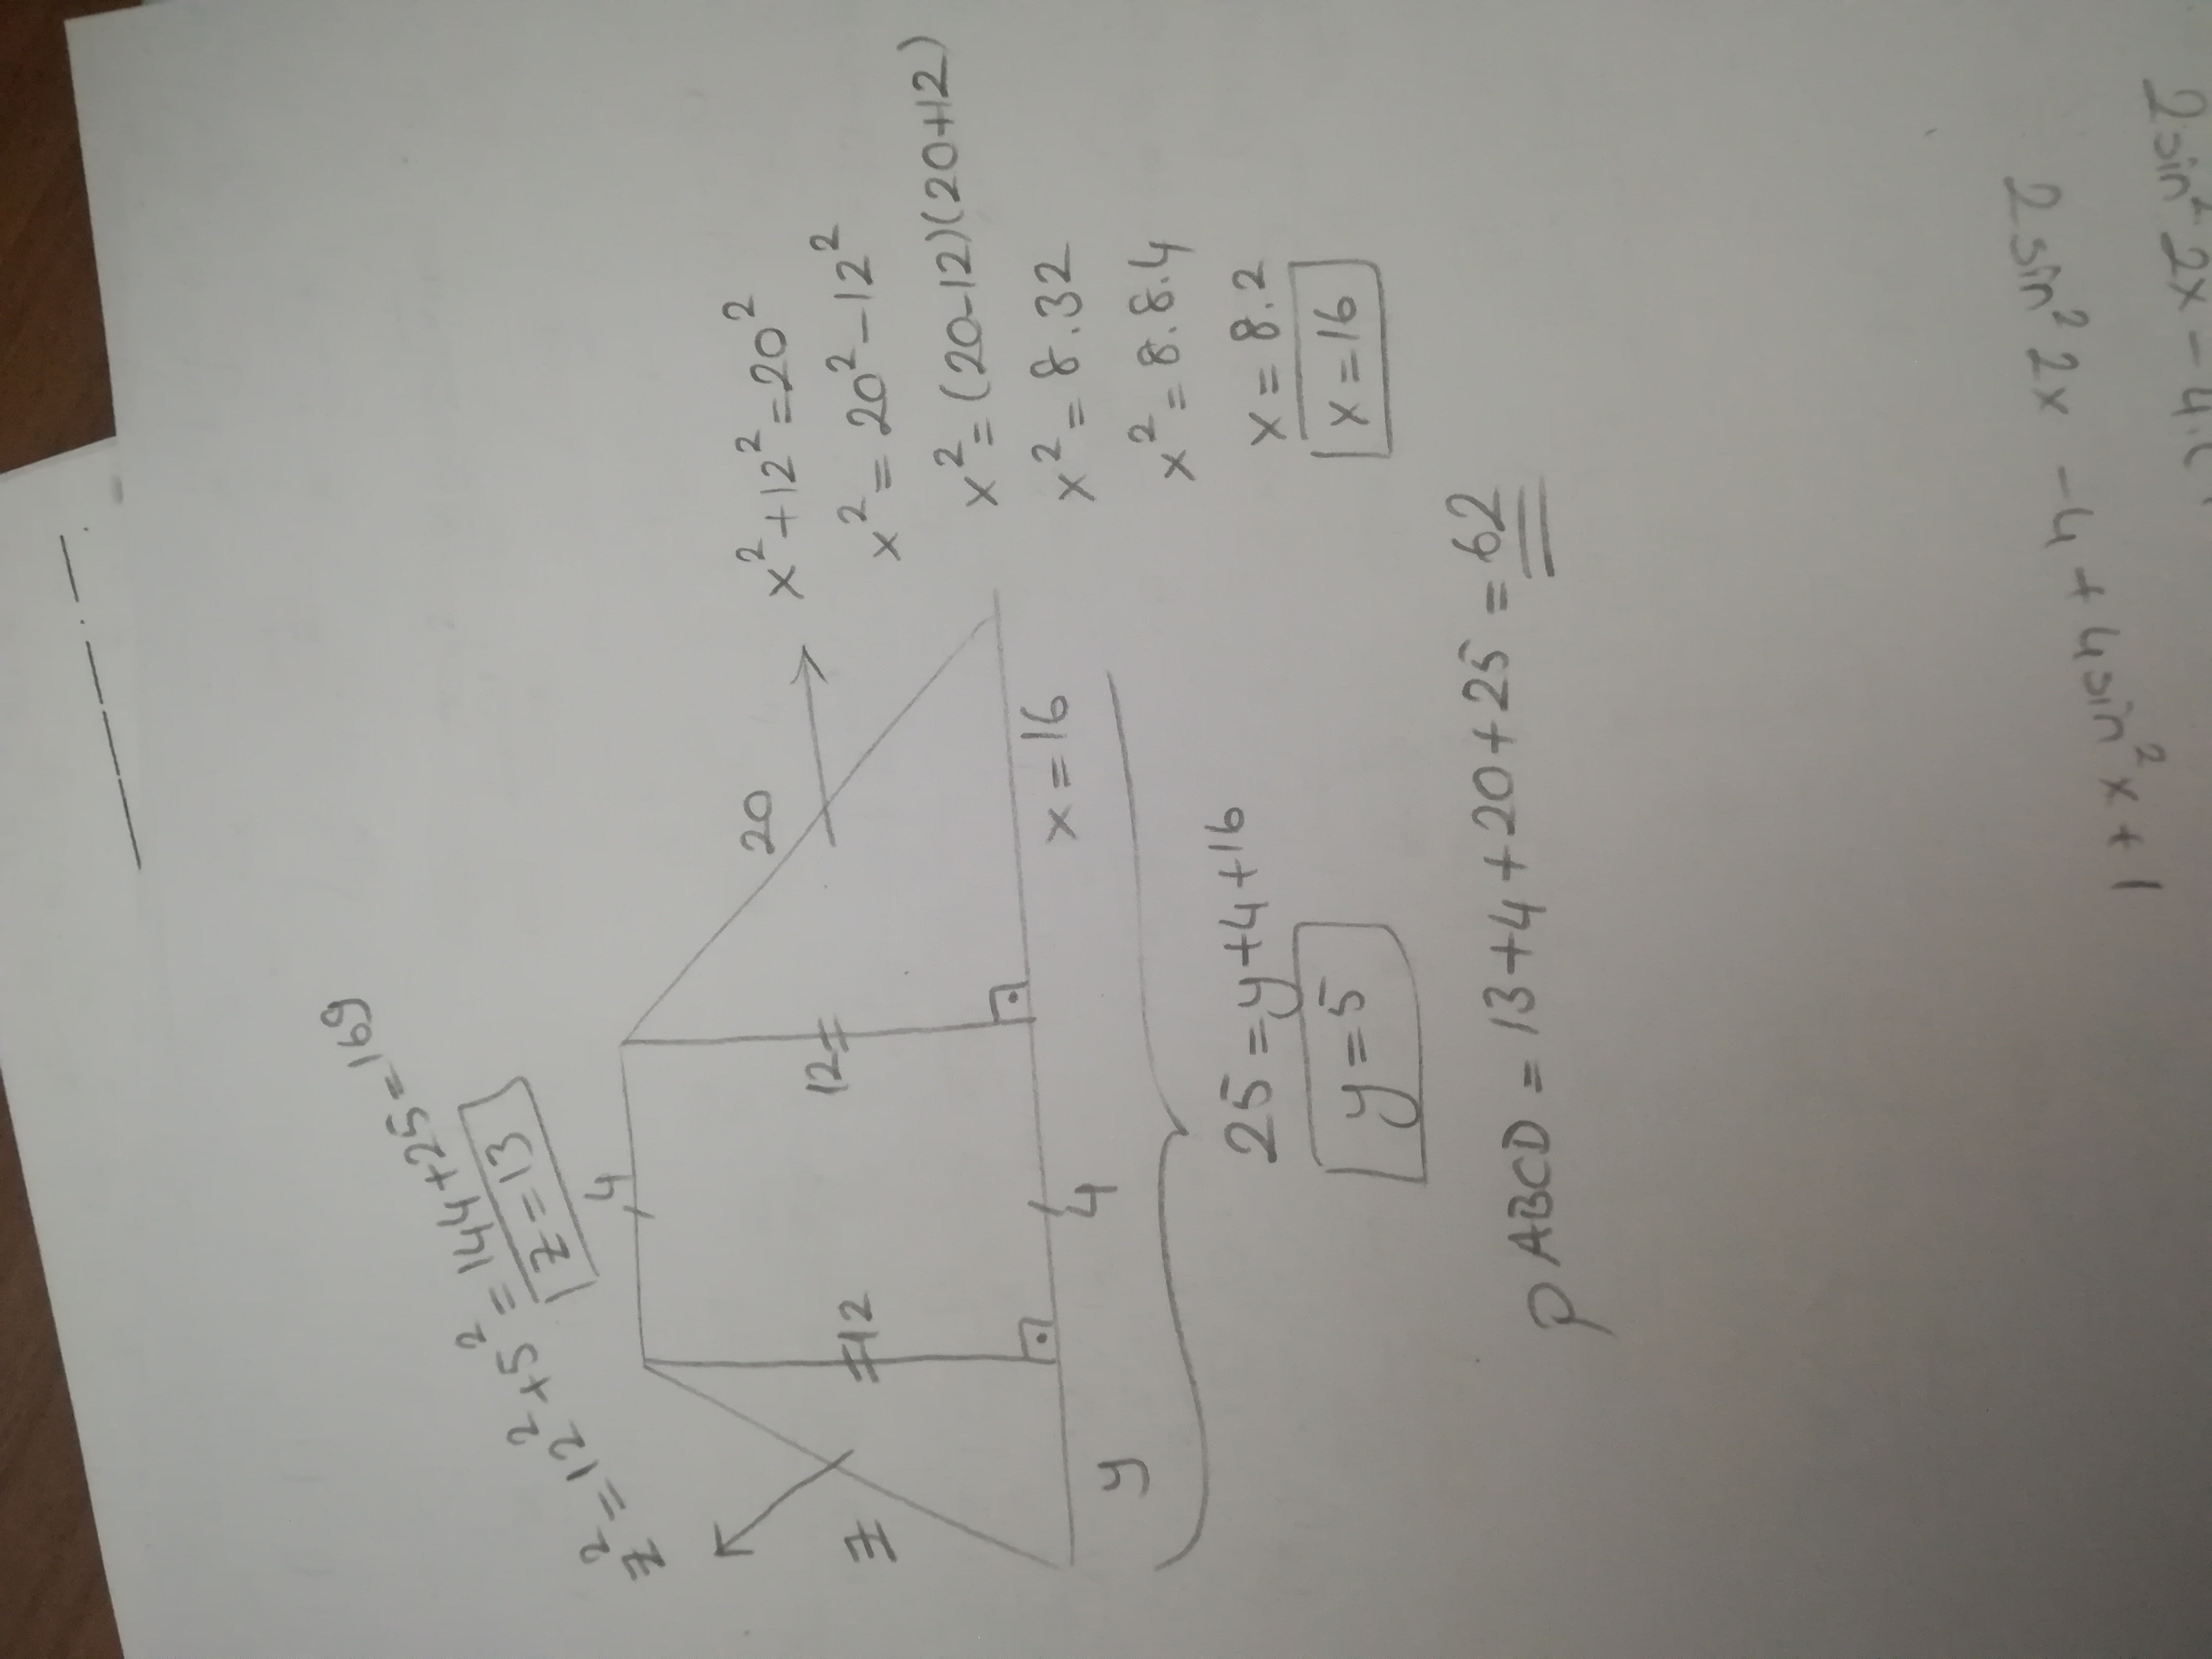 z² = 12² + 5² = 144 + 25 = 169
z = 13
4
20
12
12
z
y
4
x = 16
x² + 12² = 20²
x² = 20² - 12²
x² = (20-12)(20+12)
x² = 8.32
x² = 8.8.4
x = 8.2
x = 16
25 = y + 4 + 16
y = 5
P ABCD = 13 + 4 + 20 + 25 = 62
2 sin² 2x - 4 + 4 sin² x + 1
2 sin² 2x - 4.